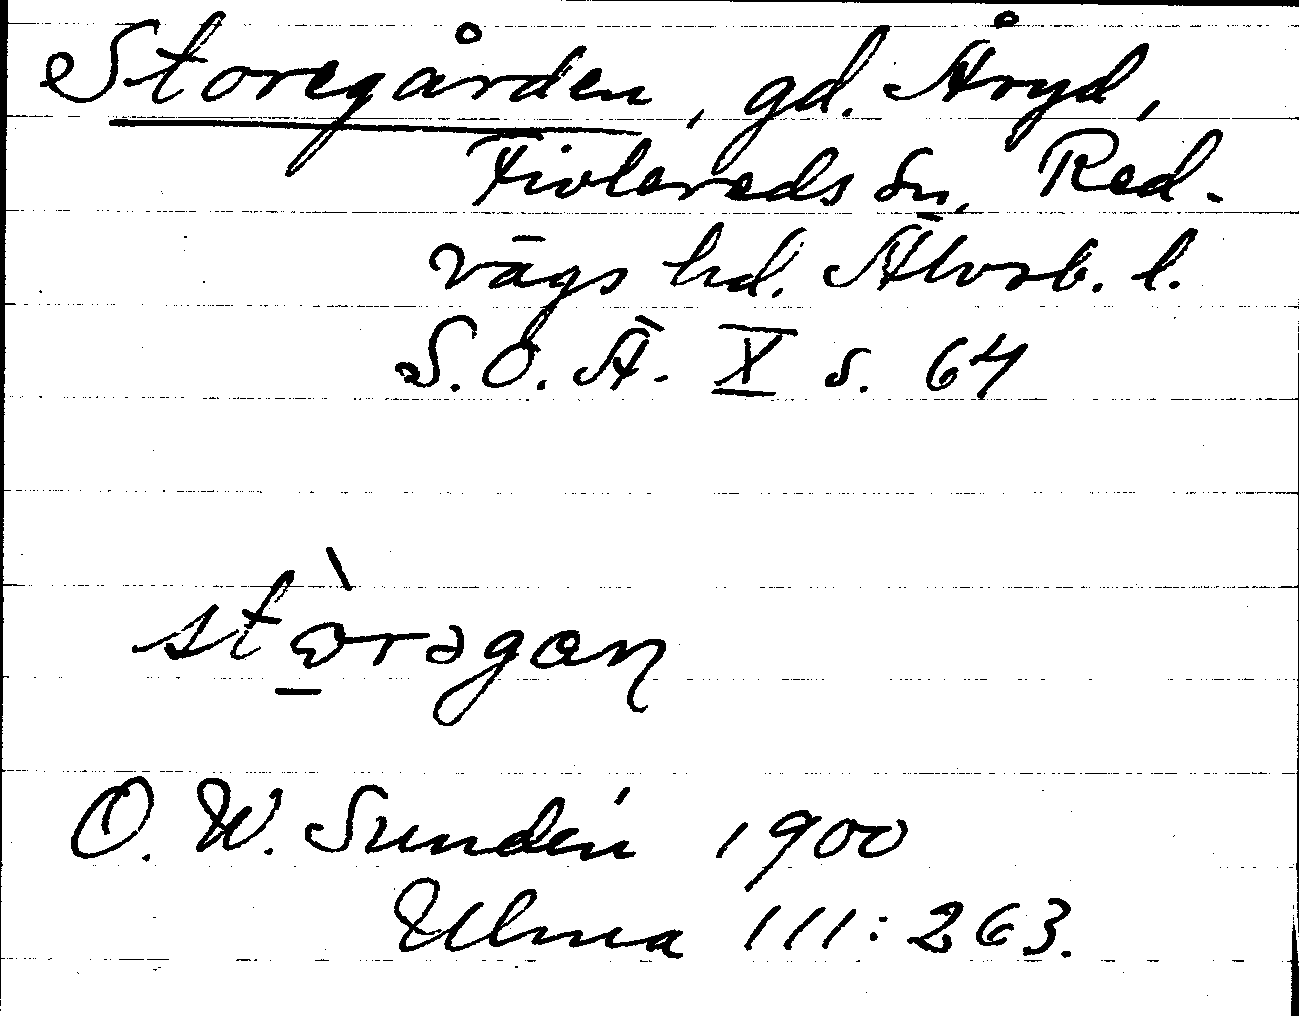 Storegården, gd. Åryd,
Fivlereds sn, Red-
vägs hd. Älvsb. l.
S.O.Ä. X s. 64
stòrəgan
O. W. Sundén 1900
Ulma 111:263.